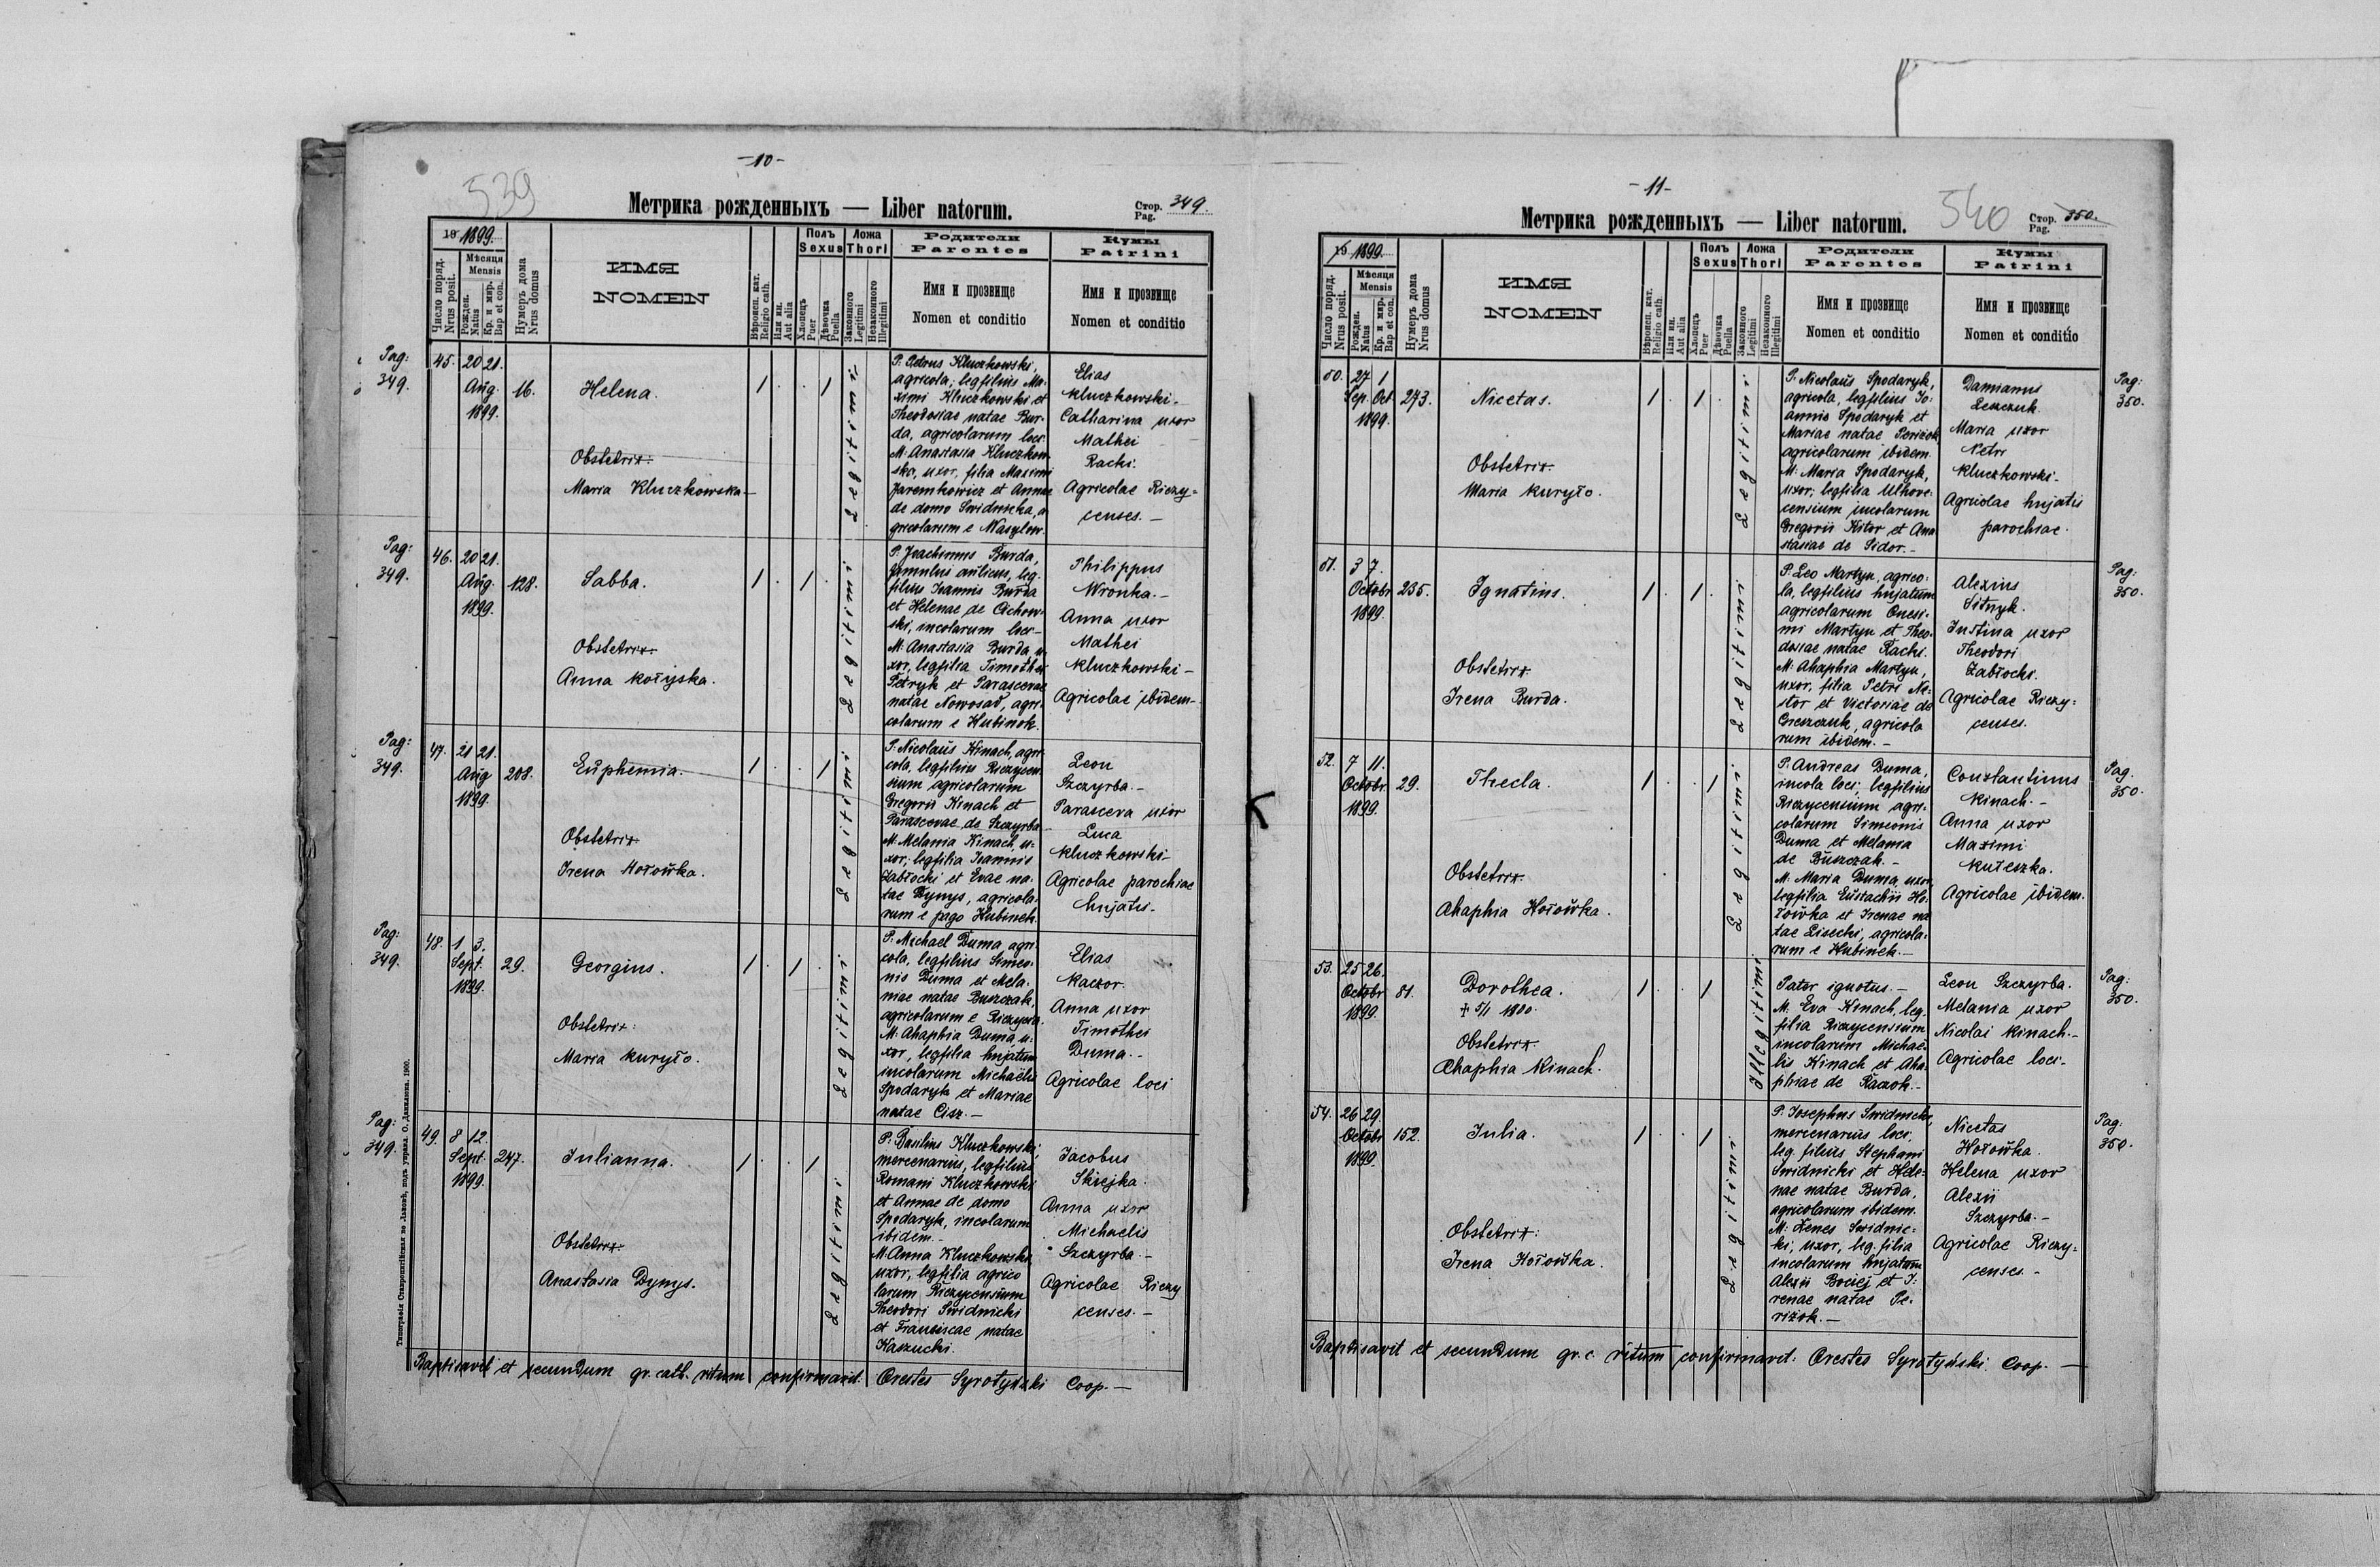 -10-
539
Метрика рожденныхъ — Liber natorum.
Стор. 349.
Pag.
19 1899.
Число поряд.
Nrus posit.
Мѣсяця
Mensis
Рожден.
Natus
Кр. и мир.
Bap et con.
Нумеръ дома
Nrus domus
ИМЯ
NOMEN
Вѣроисп. кат.
Religio cath.
Или ин.
Aut alia
Полъ
Sexus
Хлопецъ
Puer
Дѣвочка
Puella
Ложа
Thori
Законного
Legitimi
Незаконного
Illegitimi
Родители
Parentes
Имя и прозвище
Nomen et conditio
Кумы
Patrini
Имя и прозвище
Nomen et conditio
Pag:
349.
45. 20 21.
Aug. 16.
1899.
Helena.
Obstetrix:
Maria Kluczkowska-
Legitimi
P. Petrus Kluczkowski,
agricola, legfilius Ma-
ximi Kluczkowski et
Theodosiae natae Bur-
da, agricolarum loci.
M: Anastasia Kluczkow-
ska, uxor, filia Maximi
Jaremkowicz et Annae
de domo Swidnicka, a-
gricolarum e Wasylow.
Elias
Kluczkowski-
Catharina uxor
Mathei
Racki.
Agricolae Riczy=
censes. —
Pag:
349.
46. 20 21.
Aug. 128.
1899.
Sabba.
Obstetrix.
Anna Kołyska.
Legitimi
P. Joachimus Burda,
famulus aulicus, leg-
filius Joannis Burda
et Helenae de Cichow-
ski, incolarum loci-
M: Anastasia Burda, u-
xor, legfilia Timothei
Petryk et Parascevae
natae Nowosad, agri-
colarum e Hubinok.
Philippus
Wronka.-
Anna uxor
Mathei
Kluczkowski-
Agricolae ibidem-
Pag:
349.
47. 21 21.
Aug 208.
1899.
Euphemia.
Obstetrix
Irena Hołowka.
Legitimi
P. Nicolaus Kinach, agri-
cola, legfilius Riczycen-
sium agricolarum
Gregorii Kinach et
Parascevae de Szczyrba
M: Melania Kinach, u-
xor, legfilia Joannis
Zabłocki et Evae na-
tae Dynys, agricola-
rum e pago Hubinek.
Leon
Szczyrba.-
Parasceva uxor
Luca
Kluczkowski-
Agricolae parochiae
hujatis-
Pag:
349.
48. 1 3.
Sept. 29.
1899.
Georgius.
Obstetrix:
Maria Kuryło.
Legitimi
P. Michael Duma, agri-
cola, legfilius Simeo-
nis Duma et Mela-
niae natae Buszczak,
agricolarum e Riczyca.
M: Ahaphia Duma, u-
xor, legfilia hujatum
incolarum Michaëlis
Spodaryk et Mariae
natae Cisz.-
Elias
Kaczor.
Anna uxor
Timothei
Duma.-
Agricolae loci
Pag:
349.
49. 8 12.
Sept. 247.
1899.
Julianna.
Obstetrix.
Anastasia Dynys.
Legitimi
P. Basilius Kluczkowski,
mercenarius, legfilius
Romani Kluczkowski
et Annae de domo
Spodaryk, incolarum
ibidem.-
M: Anna Kluczkowska,
uxor, legfilia agrico
larum Riczycensium
Theodori Swidnicki
et Franciscae natae
Kaszucki.
Jacobus
Skiejka.
Anna uxor
Michaelis
Szczyrba.-
Agricolae Riczy
censes.-
Baptisavit et secundum gr. cath. ritum confirmavit. Orestes Syrotyński Coop.—
Типографія Ставропигійская во Львовѣ, подъ управл. О. Данилюка. 1900.
-11-
540
Метрика рожденныхъ — Liber natorum.
Стор. 350.
Pag.
19 1899.
Число поряд.
Nrus posit.
Мѣсяця
Mensis
Рожден.
Natus
Кр. и мир.
Bap et con.
Нумеръ дома
Nrus domus
ИМЯ
NOMEN
Вѣроисп. кат.
Religio cath.
Или ин.
Aut alia
Полъ
Sexus
Хлопецъ
Puer
Дѣвочка
Puella
Ложа
Thori
Законного
Legitimi
Незаконного
Illegitimi
Родители
Parentes
Имя и прозвище
Nomen et conditio
Кумы
Patrini
Имя и прозвище
Nomen et conditio
50. 27 1
Sep. Oct. 273.
1899.
Nicetas.
Obstetrix.
Maria Kuryło.
Legitimi
P. Nicolaus Spodaryk,
agricola, legfilius Jo-
annis Spodaryk et
Mariae natae Periżok,
agricolarum ibidem.
M: Maria Spodaryk,
uxor, legfilia Ulhove-
censium incolarum
Gregorii Kitor et Ana
stasiae de Sidor.-
Damianus
Leszczuk.
Maria uxor
Petri
Kluczkowski-
Agricolae hujatis
parochiae.
Pag:
350.
51. 3 7.
Octobr 235.
1899.
Ignatius.
Obstetrix
Irena Burda.
Legitimi
P. Leo Martyn, agrico-
la, legfilius hujatum
agricolarum Onesi-
mi Martyn et Theo-
dosiae natae Racki.
M: Ahaphia Martyn,
uxor, filia Petri Ne-
stor et Victoriae de
Greszczuk, agricola
rum ibidem.-
Alexius
Sitnyk.
Justina uxor
Theodori
Zabłocki.
Agricolae Riczy=
censes.
Pag:
350.
52. 7 11.
Octobr 29.
1899.
Thecla.
Obstetrix.
Ahaphia Hołowka.
Legitimi
P. Andreas Duma,
incola loci, legfilius
Riczycensium agri-
colarum Simeonis
Duma et Melania
de Buszczak.-
M. Maria Duma, uxor,
legfilia Eustachii Ho-
łowka et Irenae na
tae Lisecki, agricola-
rum e Hubinek.-
Constantinus
Kinach.-
Anna uxor
Maximi
Kuleszka.
Agricolae ibidem.
Pag.
350.
53. 25 26.
Octobr 81.
1899.
Dorothea.
+ 5/1 1900.
Obstetrix.
Ahaphia Kinach.
Illegitimi
Pater ignotus.-
M. Eva Kinach, leg-
filia Riczycensium
incolarum Michaë-
lis Kinach et Aha-
phiae de Raczok.-
Leon Szczyrba.
Melania uxor
Nicolai Kinach.-
Agricolae loci-
Pag:
350.
54. 26 29.
Octobr 152.
1899.
Julia.
Obstetrix:
Irena Hołowka.
Legitimi
P. Josephus Swidnicki,
mercenarius loci,
leg. filius Stephani
Swidnicki et Hele-
nae natae Burda,
agricolarum ibidem.
M: Xenes Swidnic-
ki, uxor, leg. filia
incolarum hujatum
Alexii Bociej et I-
renae natae Pe-
riżok.-
Nicetas
Hołowka.
Helena uxor
Alexii
Szczyrba.-
Agricolae Riczy=
censes.-
Pag:
350.
Baptisavit et secundum gr. c. ritum confirmavit: Orestes Syrotyński Coop. —